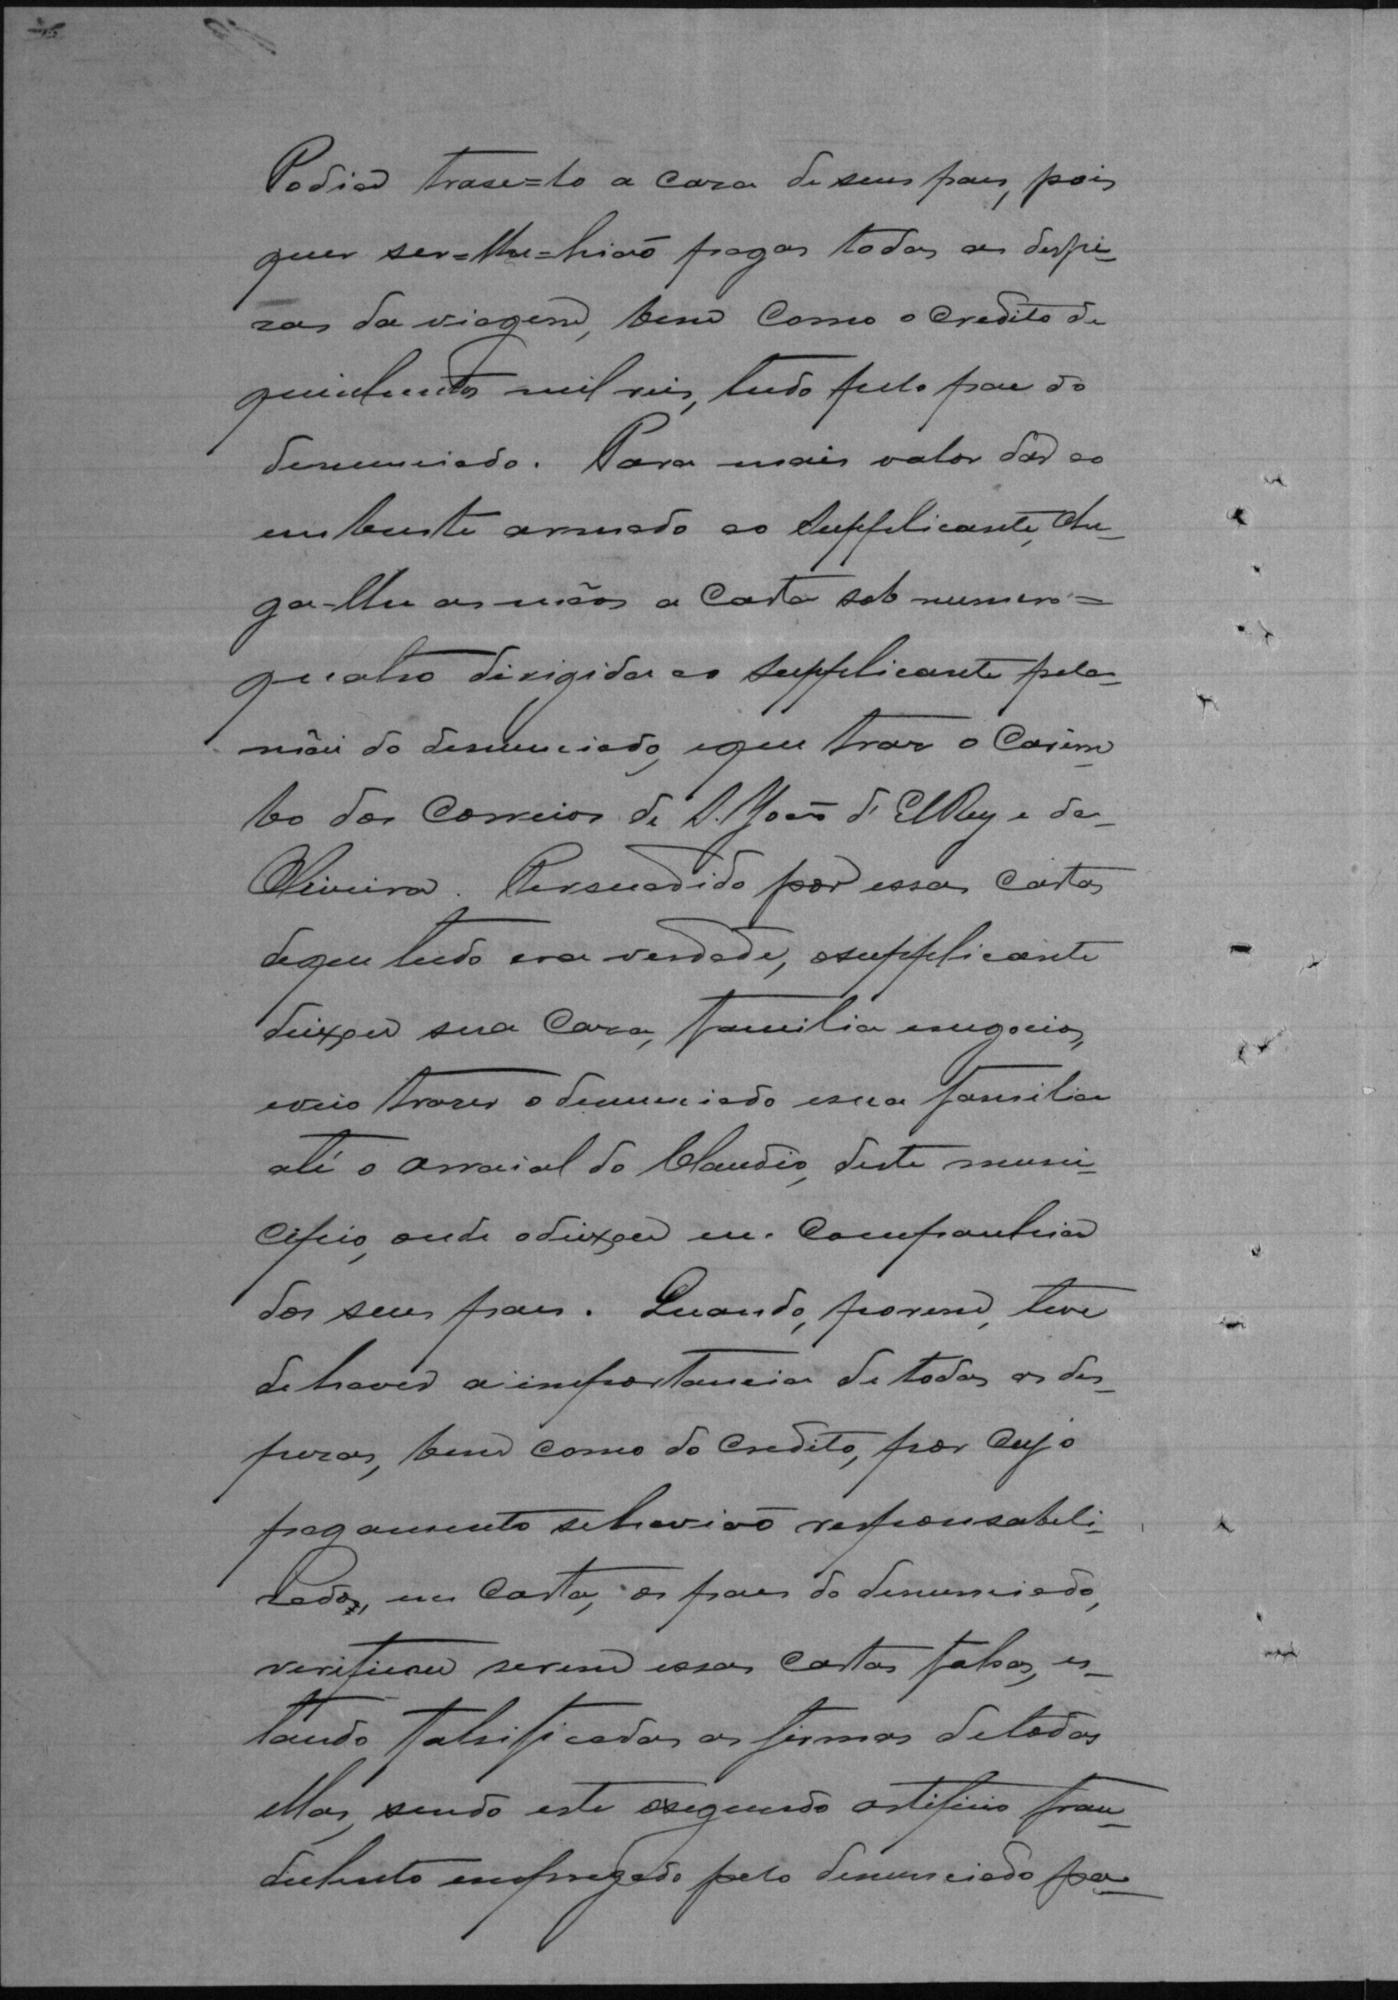 Podia trase=lo a caza de seus paes, pois
quer ser=lhe=hião pagas todas as despe-
zas da viagem, bem como o credito de
quinhentos mil reis, tudo pelo pae do
denunciado. Para mais valor dar ao
embuste armado ao supplicante, che-
ga-lhe as mãos a carta sob numero =
quatro dirigida ao supplicante pela
mãi do denunciado, e que traz o carim-
bo dos correios de S. João d' El Rey e da
Oliveira. Persuadido por essas cartas
de que tudo era verdade, o supplicante
deixou sua caza, familia e negocios,
e veio trazer o denunciado e sua familia
até o arraial do Claudio, deste muni-
cipio, onde o deixou em companhia
dos seus paes. Quando, porem, teve
de haver a importancia de todas as des-
pezas, bem como do credito, por cujo
pagamento se havião responsabeli-
zados, em carta, os paes do denunciado,
verificou serem essas cartas falsas, es-
tando falsificadas as firmas de todas
ellas, sendo este o segundo artificio frau-
dulento empregado pelo denunciado pa-